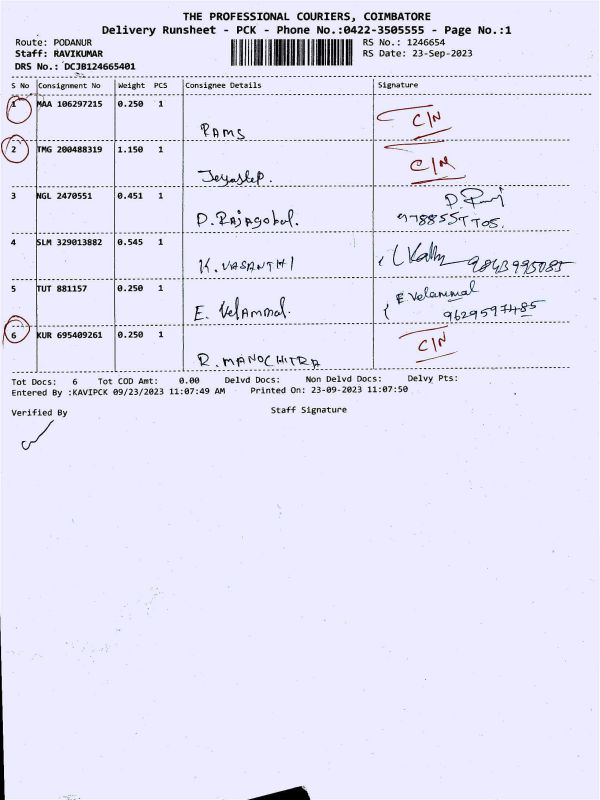 THE PROFESSIONAL COURIERS, COIMBATORE
Delivery Runsheet - PCK - Phone No.:0422-3505555 - Page No.:1
Route: PODANUR RS No.: 1246654
Staff: RAVIKUMAR RS Date: 23-Sep-2023
DRS No.: DCJB124665401
S No Consignment No Weight PCS Consignee Details Signature
1 MAA 106297215 0.250 1
RAMS C/N
2 TMG 200488319 1.150 1
C/N
3 NGL 2470551 0.451 1
P. Rajagobal.
4 SLM 329013882 0.545 1
K. VASANTHI 9843995085
5 TUT 881157 0.250 1
E. Velammal. E Velammal
9629597485
6 KUR 695409261 0.250 1
R. MANOCHITRA C/N
Tot Docs: 6 Tot COD Amt: 0.00 Delvd Docs: Non Delvd Docs: Delvy Pts:
Entered By :KAVIPCK 09/23/2023 11:07:49 AM Printed On: 23-09-2023 11:07:50
Verified By Staff Signature